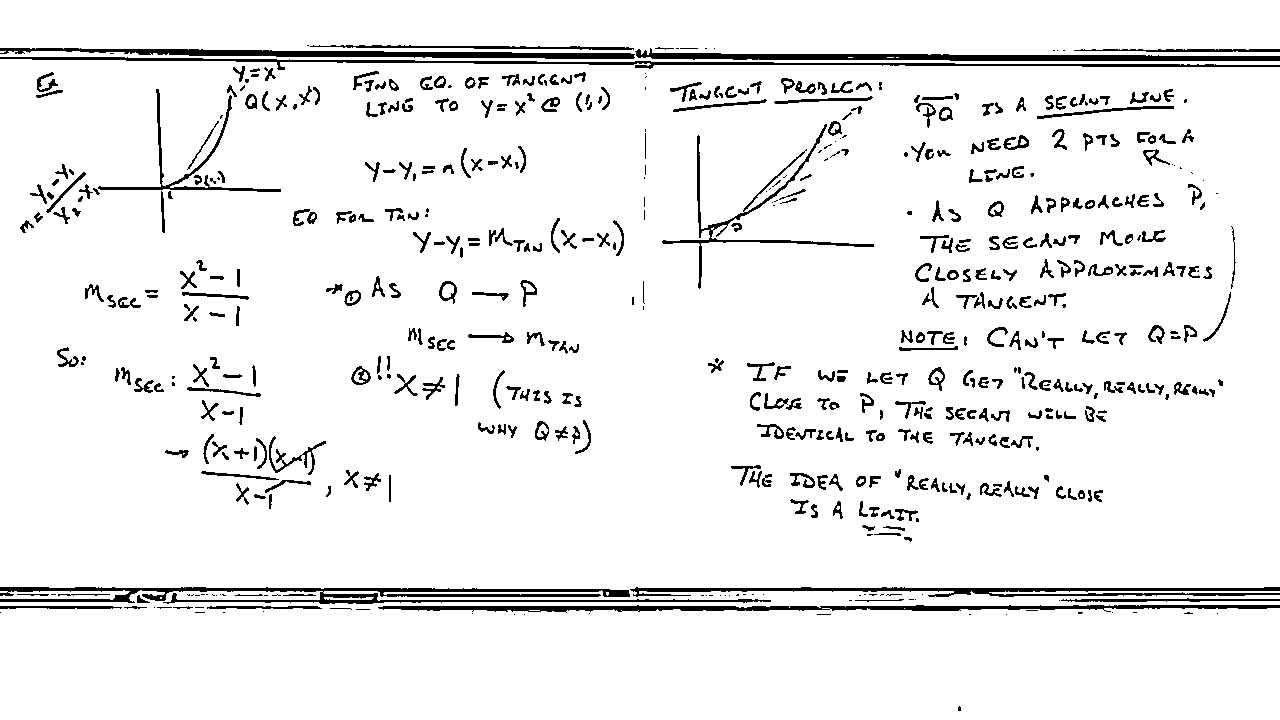 Ex
y=x²
Q(x,x²)
P(1,1)
m = y₂-y₁ / y₂-x₁
FIND EQ. OF TANGENT
LING TO Y=X² @ (1,1)
Y-Y₁=m(X-X₁)
EQ FOR TAN:
Y-Y₁=M_TAN(X-X₁)
m_SEC = x²-1 / x-1
* ① AS Q → P
m_SEC → m_TAN
So:
m_SEC: x²-1 / x-1
② !! X≠1 (THIS IS
WHY Q≠P)
→ (x+1)(x-1) / x-1, x≠1
TANGENT PROBLEM:
Q
P
PQ IS A SECANT LINE.
• YOU NEED 2 PTS FOR A
LINE.
• AS Q APPROACHES P,
THE SECANT MORE
CLOSELY APPROXIMATES
A TANGENT.
NOTE: CAN'T LET Q=P
* IF WE LET Q GET "REALLY, REALLY, REALLY"
CLOSE TO P, THE SECANT WILL BE
IDENTICAL TO THE TANGENT.
THE IDEA OF "REALLY, REALLY" CLOSE
IS A LIMIT.